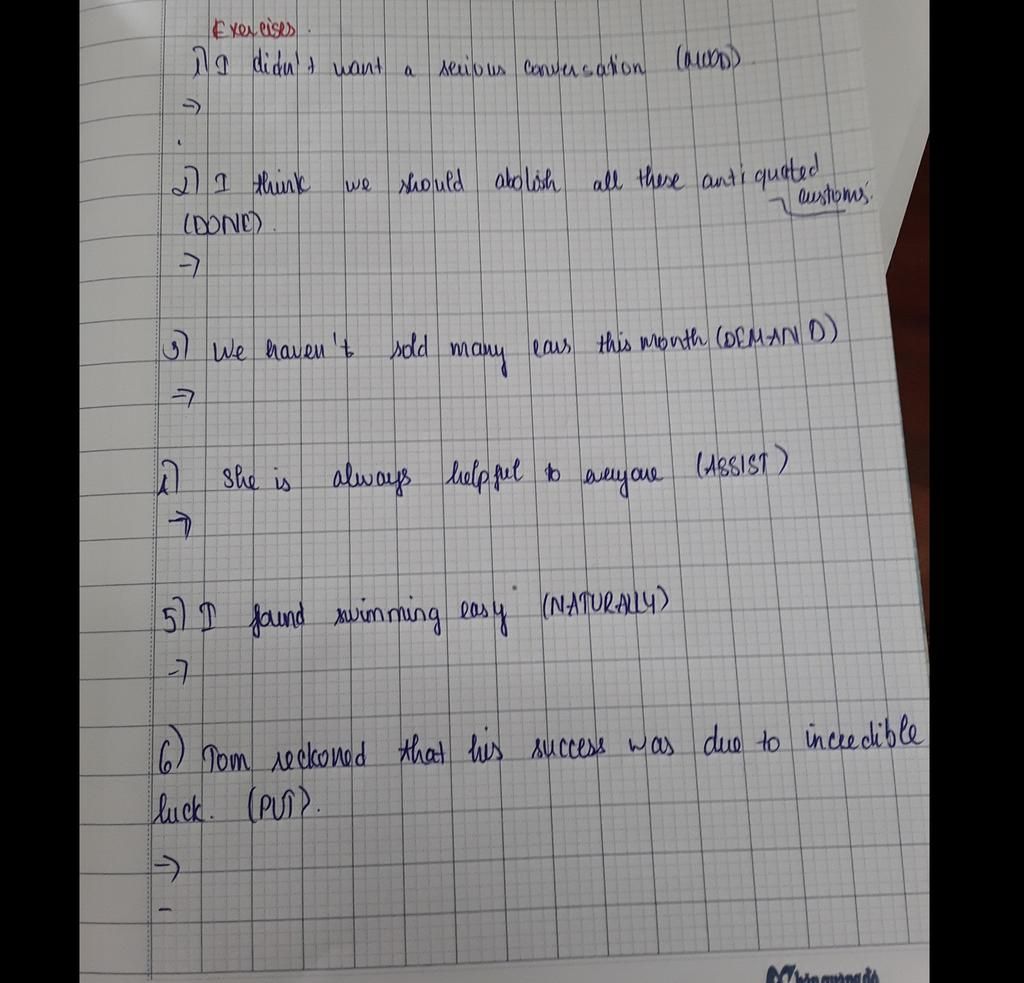 Exercises.
1) I didn't want a serious conversation (MOOD)
=>
2) I think we should abolish all these antiquated
customs.
(DONE).
=>
3) We haven't sold many cars this month (DEMAND)
=>
4) She is always helpful to everyone (ASSIST)
=>
5) I found swimming easy (NATURALLY)
=>
6) Tom reckoned that his success was due to incredible
luck. (PUT).
=>
-